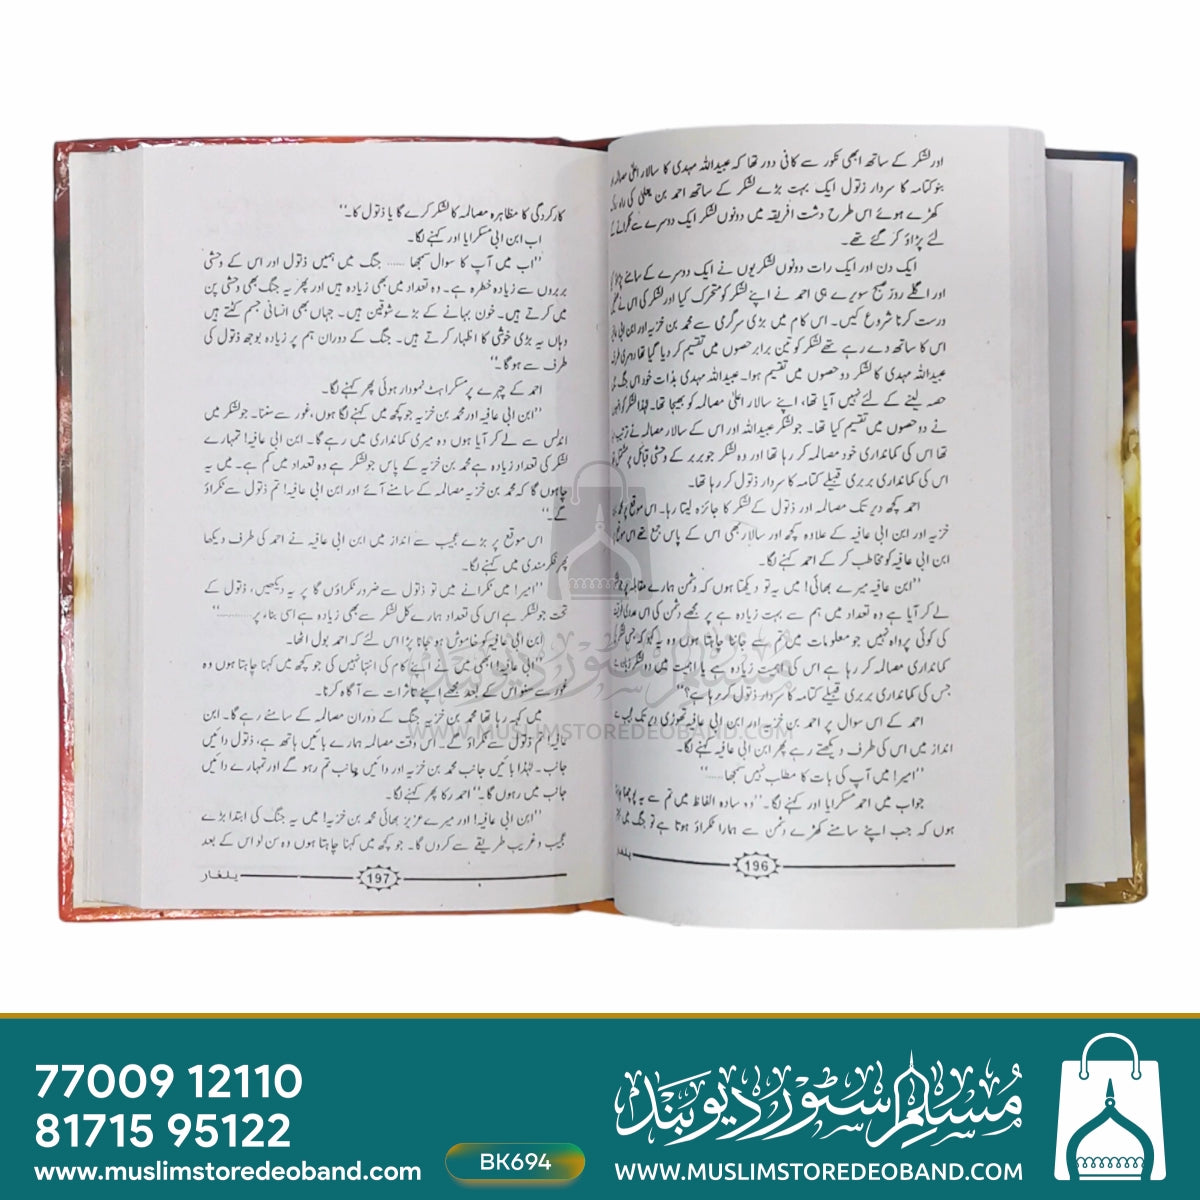 اور لشکر کے ساتھ ابھی نکور سے کافی دور تھا کہ عبیداللہ مہدی کا سالار اعلیٰ مصالہ
بنو کتامہ کا سردار زتول ایک بہت بڑے لشکر کے ساتھ احمد بن یعلیٰ کی راہ
کھڑے ہوئے اس طرح دشت افریقہ میں دونوں لشکر ایک دوسرے سے ٹکرانے کے
لئے پڑاؤ کر گئے تھے۔
ایک دن اور ایک رات دونوں لشکریوں نے ایک دوسرے کے سامنے پڑاؤ
اور اگلے روز صبح سویرے ہی احمد نے اپنے لشکر کو متحرک کیا اور لشکر کی اس نے
درست کرنا شروع کیں۔ اس کام میں بڑی سرگرمی سے محمد بن خزیہ اور ابن ابی
اس کا ساتھ دے رہے تھے لشکر کو تین برابر حصوں میں تقسیم کر دیا گیا تھا دوسری طرف
عبیداللہ مہدی کا لشکر دو حصوں میں تقسیم ہوا۔ عبیداللہ مہدی بذات خود اس جنگ
حصہ لینے کے لئے نہیں آیا تھا، اپنے سالار اعلیٰ مصالمہ کو بھیجا تھا۔ لہٰذا لشکر کو
نے دو حصوں میں تقسیم کیا تھا۔ جو لشکر عبیداللہ اور اس کے سالار مصالمہ نے ترتیب
تھا اس کی کمانداری خود مصالمہ کر رہا تھا اور وہ لشکر جو بربر کے وحشی قبائل پر مشتمل
اس کی کمانداری بربری قبیلے کتامہ کا سردار ذتول کر رہا تھا۔
احمد کچھ دیر تک مصالمہ اور ذتول کے لشکر کا جائزہ لیتا رہا۔ اس موقع پر محمد
خزیہ اور ابن ابی عافیہ کے علاوہ کچھ اور سالار بھی اس کے پاس جمع تھے اس موقع
ابن ابی عافیہ کو مخاطب کر کے احمد کہنے لگا۔
"ابن عافیہ میرے بھائی! میں یہ تو دیکھتا ہوں کہ دشمن ہمارے مقابلہ پر
لے کر آیا ہے وہ تعداد میں ہم سے بہت زیادہ ہے پر مجھے دشمن کی اس عددی
کی کوئی پرواہ نہیں جو معلومات میں تم سے جاننا چاہتا ہوں وہ یہ کہ
کمانداری مصالمہ کر رہا ہے اس کی اہمیت زیادہ ہے یا اہمیت میں وہ لشکر زیادہ ہے
جس کی کمانداری بربری قبیلے کتامہ کا سردار ذتول کر رہا ہے؟"
احمد کے اس سوال پر احمد بن خزیہ اور ابن ابی عافیہ تھوڑی دیر تک عجیب سے
انداز میں اس کی طرف دیکھتے رہے پھر ابن ابی عافیہ کہنے لگا۔
"امیر! میں آپ کی بات کا مطلب نہیں سمجھا......"
جواب میں احمد مسکرایا اور کہنے لگا۔ "وہ سادہ الفاظ میں تم سے یہ پوچھنا چاہتا
ہوں کہ جب اپنے سامنے کھڑے دشمن سے ہمارا ٹکراؤ ہوتا ہے تو جنگ میں
یلغار
196
کارکردگی کا مظاہرہ مصالمہ کا لشکر کرے گا یا ذتول کا۔"
اب ابن ابی مسکرایا اور کہنے لگا۔
"اب میں آپ کا سوال سمجھا ...... جنگ میں ہمیں ذتول اور اس کے وحشی
بربروں سے زیادہ خطرہ ہے۔ وہ تعداد میں بھی زیادہ ہیں اور پھر یہ جنگ بھی وحشی پن
میں کرتے ہیں۔ خون بہانے کے بڑے شوقین ہیں۔ جہاں بھی انسانی جسم کٹتے ہیں
وہاں یہ بڑی خوشی کا اظہار کرتے ہیں۔ جنگ کے دوران ہم پر زیادہ بوجھ ذتول کی
طرف سے ہو گا۔"
احمد کے چہرے پر مسکراہٹ نمودار ہوئی پھر کہنے لگا۔
"ابن ابی عافیہ اور محمد بن خزیہ جو کچھ میں کہنے لگا ہوں، غور سے سننا۔ جو لشکر میں
اندلس سے لے کر آیا ہوں وہ میری کمانداری میں رہے گا۔ ابن ابی عافیہ! تمہارے
لشکر کی تعداد زیادہ ہے محمد بن خزیہ کے پاس جو لشکر ہے وہ تعداد میں کم ہے۔ میں یہ
چاہوں گا کہ محمد بن خزیہ مصالمہ کے سامنے آئے اور ابن ابی عافیہ! تم ذتول سے ٹکراؤ
گے۔"
اس موقع پر بڑے عجیب سے انداز میں ابن ابی عافیہ نے احمد کی طرف دیکھا
پھر فکرمندی میں کہنے لگا۔
"امیر! میں ٹکرانے میں تو ذتول سے ضرور ٹکراؤں گا پر یہ دیکھیں، ذتول کے
تحت جو لشکر ہے اس کی تعداد ہمارے کل لشکر سے بھی زیادہ ہے اسی بناء پر ............"
ابن ابی عافیہ کو خاموش ہو جانا پڑا اس لئے کہ احمد بول اٹھا۔
"ابی عافیہ! ابھی میں نے اپنے کام کی انتہا نہیں کی جو کچھ میں کہنا چاہتا ہوں وہ
غور سے سنو اس کے بعد مجھے اپنے تاثرات سے آگاہ کرنا۔
میں کہہ رہا تھا محمد بن خزیہ جنگ کے دوران مصالمہ کے سامنے رہے گا۔ ابن
عافیہ! تم ذتول سے ٹکراؤ گے۔ اس وقت مصالمہ ہمارے بائیں ہاتھ ہے، ذتول دائیں
جانب۔ لہٰذا بائیں جانب محمد بن خزیہ اور دائیں جانب تم رہو گے اور تمہارے دائیں
جانب میں رہوں گا۔" احمد رکا پھر کہنے لگا۔
"ابن ابی عافیہ! اور میرے عزیز بھائی محمد بن خزیہ! میں یہ جنگ کی ابتدا بڑے
عجیب و غریب طریقے سے کروں گا۔ جو کچھ میں کہنا چاہتا ہوں وہ سن لو اس کے بعد
یلغار
197
مسلم سٹور دیوبند
WWW.MUSLIMSTOREDEOBAND.COM
77009 12110
81715 95122
www.muslimstoredeoband.com
BK694
مسلم سٹور دیوبند
WWW.MUSLIMSTOREDEOBAND.COM